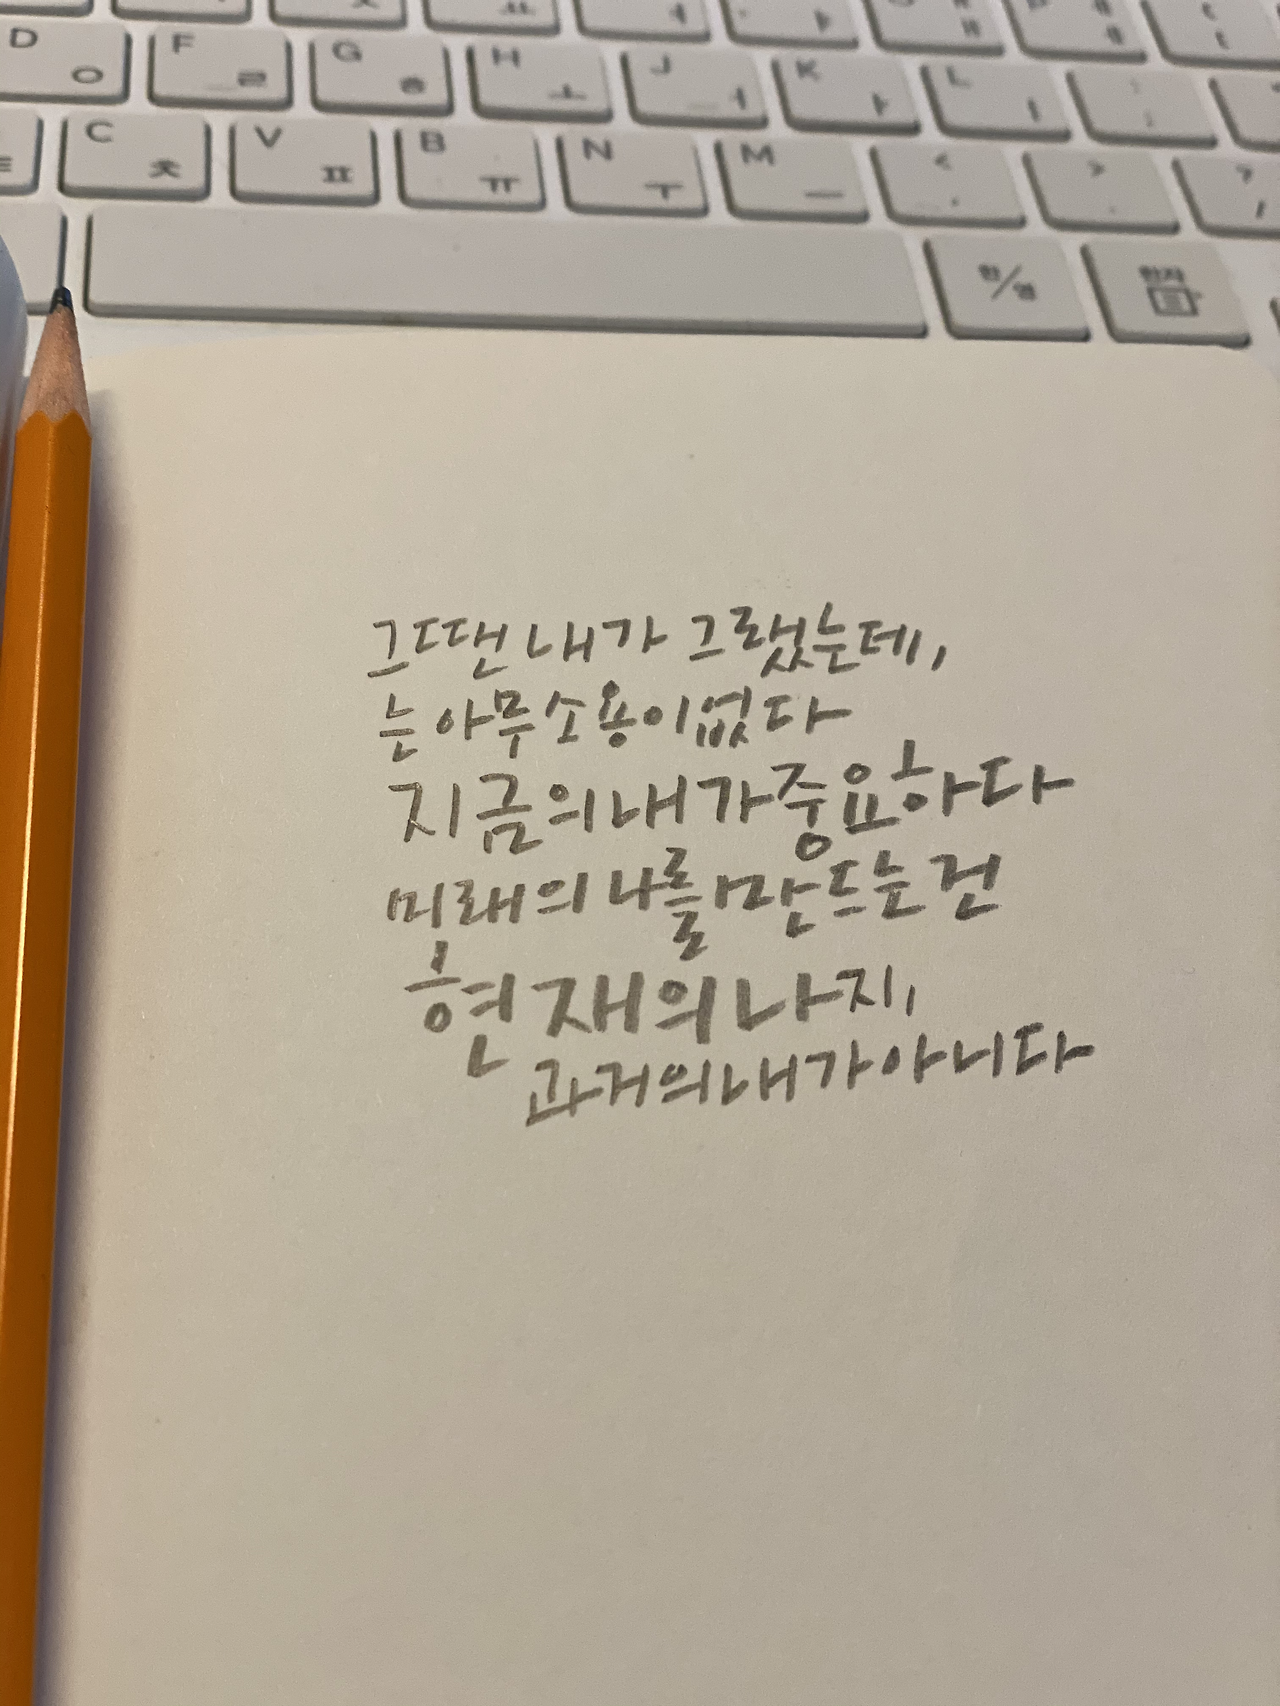 D ㅇ F ㄹ G ㅎ H ㅗ J ㅓ K ㅏ L ㅣ ; :
C ㅊ V ㅍ B ㅠ N ㅜ M ㅡ < , > . ? /
한/영 한자
그땐 내가 그랬는데,
는 아무 소용이 없다
지금의 내가 중요하다
미래의 나를 만드는 건
현재의 나지,
과거의 내가 아니다